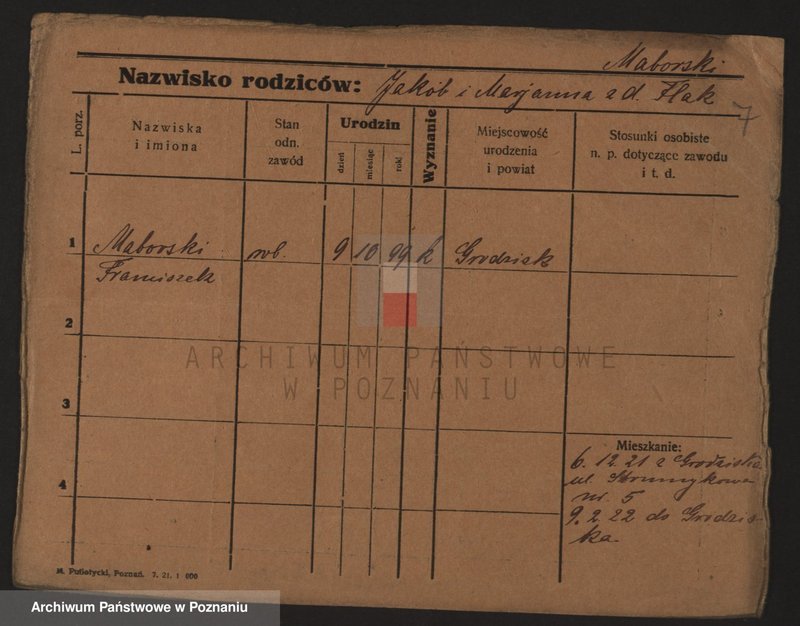 Maborski
Nazwisko rodziców: Jakób i Marjanna z d. Flak
7
L. porz.
Nazwiska
i imiona
Stan
odn.
zawód
Urodzin
dzień
miesiąc
rok
Wyznanie
Miejscowość
urodzenia
i powiat
Stosunki osobiste
n. p. dotyczące zawodu
i t. d.
1
Maborski
Franciszek
rob.
9
10
99
k
Grodzisk
2
3
4
ARCHIWUM PAŃSTWOWE
W POZNANIU
Mieszkanie:
6. 12. 21 z Grodziska
ul. Strumykowa
nr. 5
9. 2. 22 do Grodzis-
ka.
M. Putiatycki, Poznań. 7. 21. 1 000
Archiwum Państwowe w Poznaniu